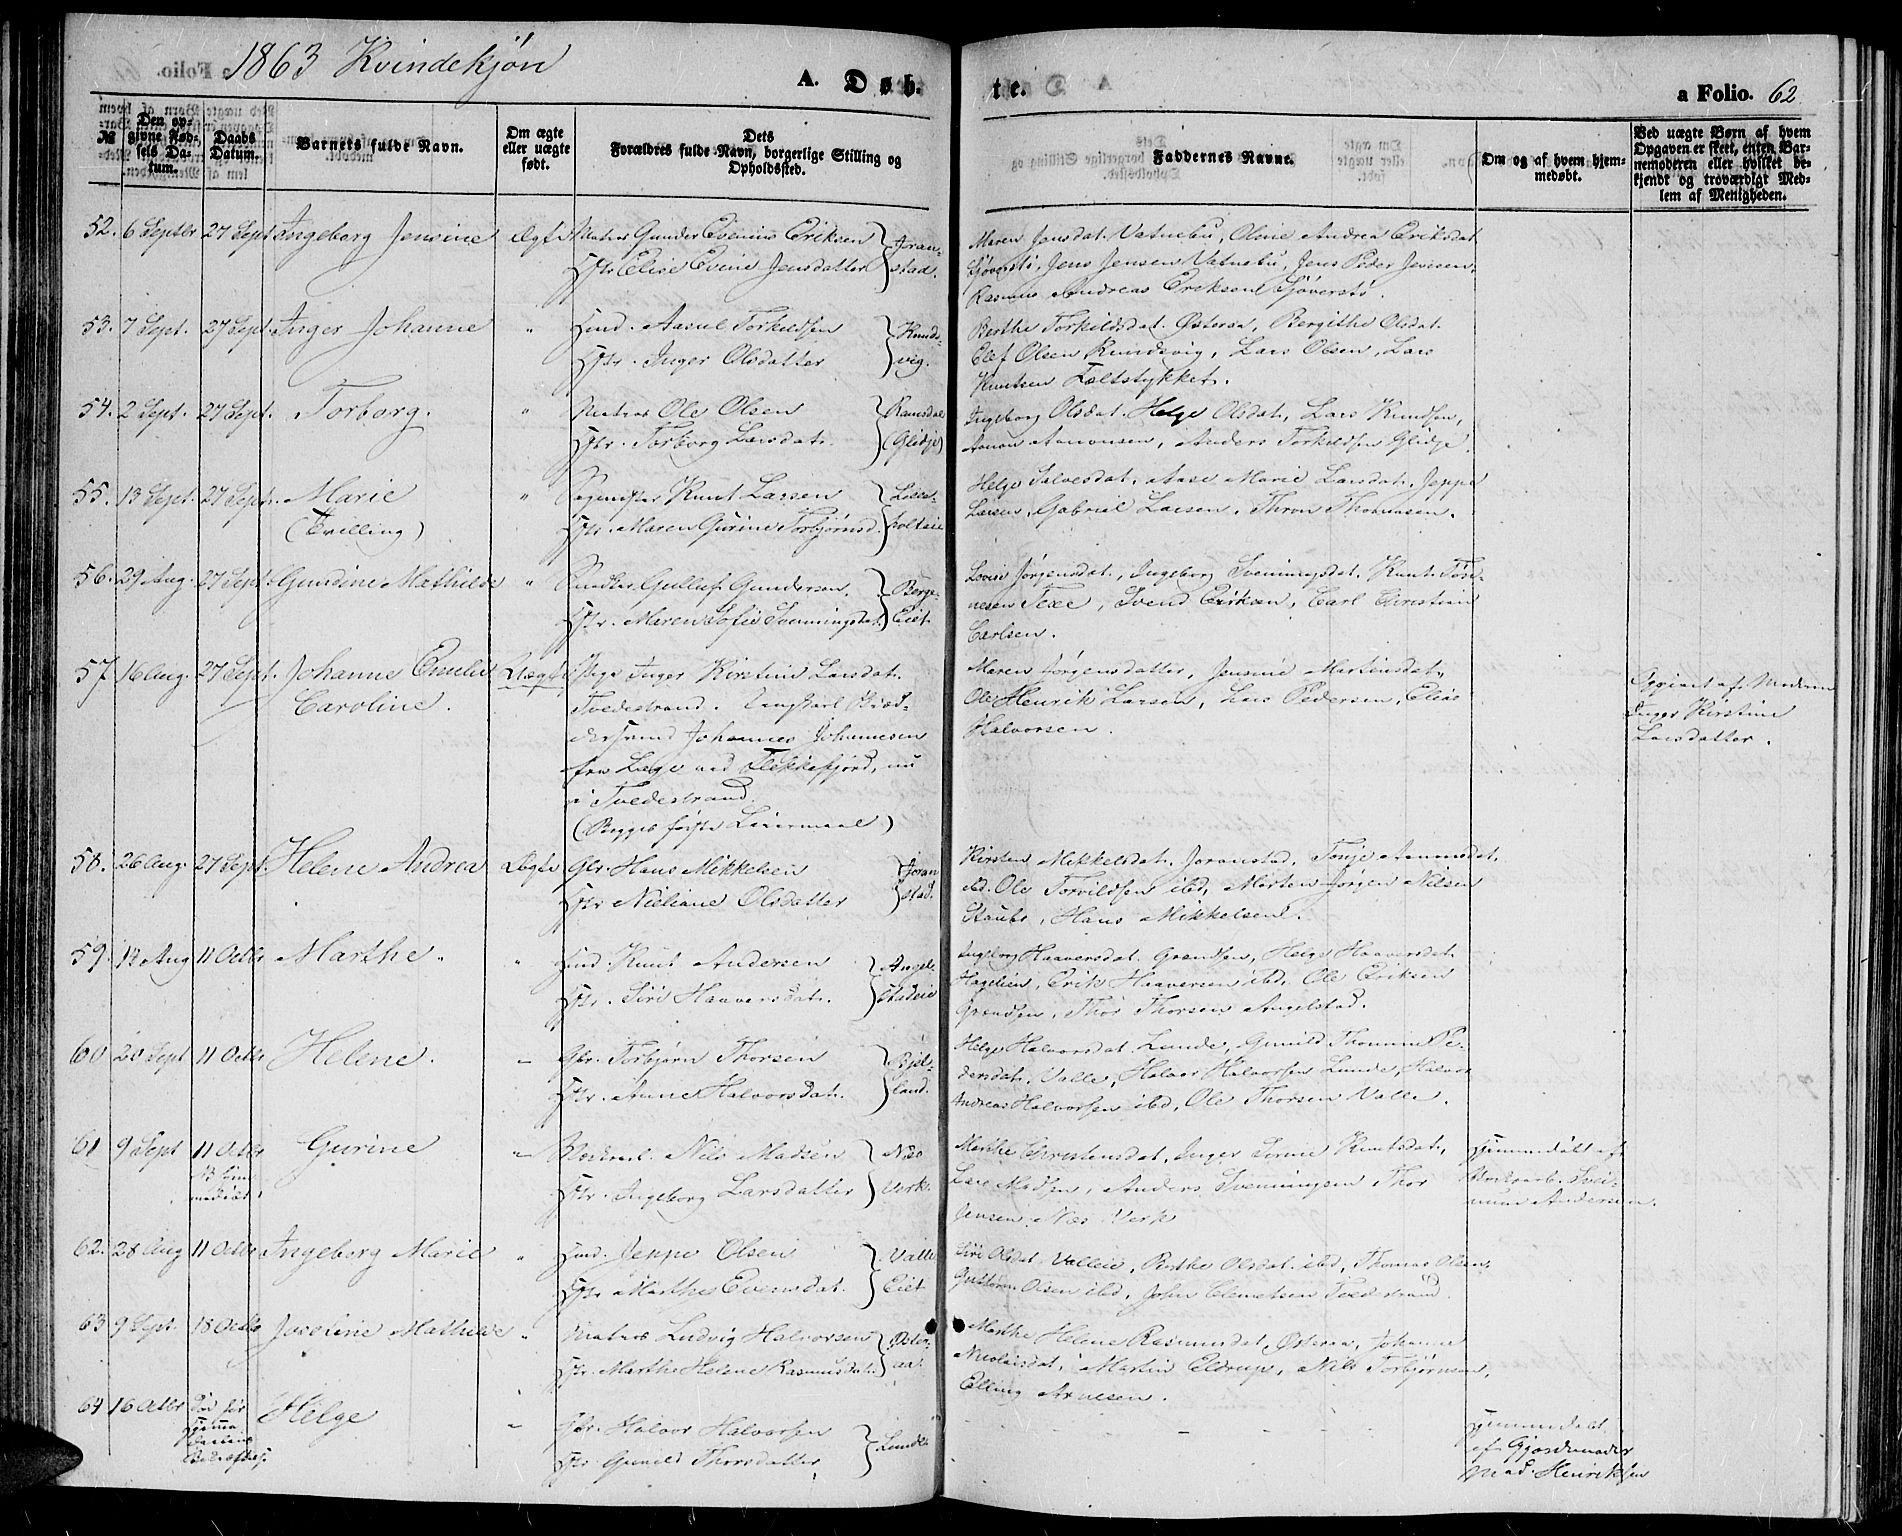 1863 Kvindekjøn
A. Døb- te.
a Folio. 62
№
Den op-
givne Fød-
sels Da-
tum.
Daabs
Datum.
Barnets fulde Navn.
Om ægte
eller uægte
født.
Dets
Forældres fulde Navn, borgerlige Stilling og
Opholdssted.
Faddernes Navne.
Om og af hvem hjem-
medøbt.
Ved uægte Børn af hvem
Opgaven er skeet, enten Bar-
nemoderen eller hvilket be-
kjendt og troværdigt Med-
lem af Menigheden.
52. 6 Septbr 27 Sept Ingeborg Jensine Ægte Matros Gunder Evenius Eriksen
Hstr Elise Evine Jensdatter
Joran-
stad.
Maren Jensdat. Vatnebu, Oline Andrea Eriksdat
Sjøverstø, Jens Jensen Vatnebu, Jens Peder Jensen
Rasmus Andreas Eriksen Sjøverstø.
53. 7 Sept. 27 Sept. Inger Johanne " Hmd. Aasul Torkildsen
Hstr. Inger Olsdatter
Kunds-
vig.
Berthe Torkildsdat. Østeraa, Bergithe Olsdat.
Elef Olsen Kundsvig, Lars Olsen, Lars
Knutsen Foltstykket.
54. 2 Sept. 27 Sept. Torborg. " Matros Ole Olsen
Hstr. Torborg Larsdat.
Ramsdal
(Glidje)
Ingeborg Olsdat. Helge Olsdat, Lars Knudsen,
Aanon Aanonsen, Anders Torkildsen Glidje.
55. 13 Sept. 27 Sept. Marie
(Tvilling)
" Knut Larsen
Hstr. Maren Gurine Torbjørnsd.
Helge Salvesdat, Aase Marie Larsdat. Jeppe
Larsen, Gabriel Larsen, Thron Thomassen.
56. 29 Aug. 27 Sept. Gundine Mathilde " Gullef Gundersen.
Hstr. Maren Sofie Svenningsdat.
Berge-
Eiet.
Lovise Jørgensdat., Ingeborg Svenningsdat. Knut Tøn-
nesen Texe, Svend Eriksen, Carl Christian
Carlsen.
57 16 Aug. 27 Sept. Johanne Emilie
Caroline.
Uægte Pige Inger Kirstine Larsdat.
Tvedestrand. Ungkarl
Johannes Johannesen
fra ved Flekkefjord, nu
i Tvedestrand.
(Begges første Leiermaal)
Maren Jørgensdatter, Jensine Martinsdat.
Ole Henrik Larsen, Lars Pedersen, Elias
Halvorsen.
Opgivet af Moderen
Inger Kirstine
Larsdatter.
58. 26 Aug. 27 Sept. Helene Andrea Ægte Gbr. Hans Mikkelsen
Hstr Nieliane Olsdatter
Joran
stad.
Kirsten Mikkelsdat. Joranstad, Tonje Aanonsdat.
ibd. Ole Torvildsen ibd, Morten Jørgen Nilsen
Staubø, Hans Mikkelsen.
59. 12 Aug 11 Octbr Marthe. " Hmd. Knut Andersen
Hstr. Siri Haaversdat.
Angel-
stadeie
Ingeborg Haaversdat. Grendsen, Helge Haaversdat
Hagelien, Erik Haaversen ibd, Ole Eriksen
Grendsen, Thor Thorsen Angelstad.
60 20 Sept 11 Octbr Helene. " Gbr. Torbjørn Thorsen
Hstr. Anne Halvorsdat.
Bjel-
land.
Helge Halvorsdat. Lunde, Gunild Thomine Pe-
dersdat. Valle, Halvor Halvorsen Lunde, Halvor
Andreas Halvorsen ibd, Ole Thorsen Valle.
61 9 Sept 11 Octbr
Gurine " Nils Madsen
Hstr. Ingeborg Larsdatter
Næs
Verk.
Marthe Christensdat, Inger Sørine Knutsdat,
Lars Madsen, Anders Svenningsen Thor
Jensen, Næs Verk
Hjemmedøbt af
Verksarb. Svei-
nung Andersen.
62. 28 Aug 11 Octbr Ingeborg Marie " Hmd. Jeppe Olsen
Hstr Marthe Evensdat.
Valle
Eiet
Siri Olsdat. Valleie, Berthe Olsdat. ibd, Thomas Olsen,
Olsen ibd, John Clemetsen Tvedestrand.
63 9 Sept. 18 Octbr Josefine Mathilde " Matros Ludvig Halvorsen
Hstr. Marthe Helene Rasmusdat.
Øster-
aa.
Marthe Helene Rasmusdat, Østeraa, Johanne
Nicolaisdat, Martin Eldrup, Nils Torbjørnsen,
Elling Arnesen.
64 16 Octbr Død før
Helge " Gbr. Halvor Halvorsen
Hstr Gunild Thorsdatter
Lunde
Hjemmedøbt
af Gjordemoder
Mad. Henriksen